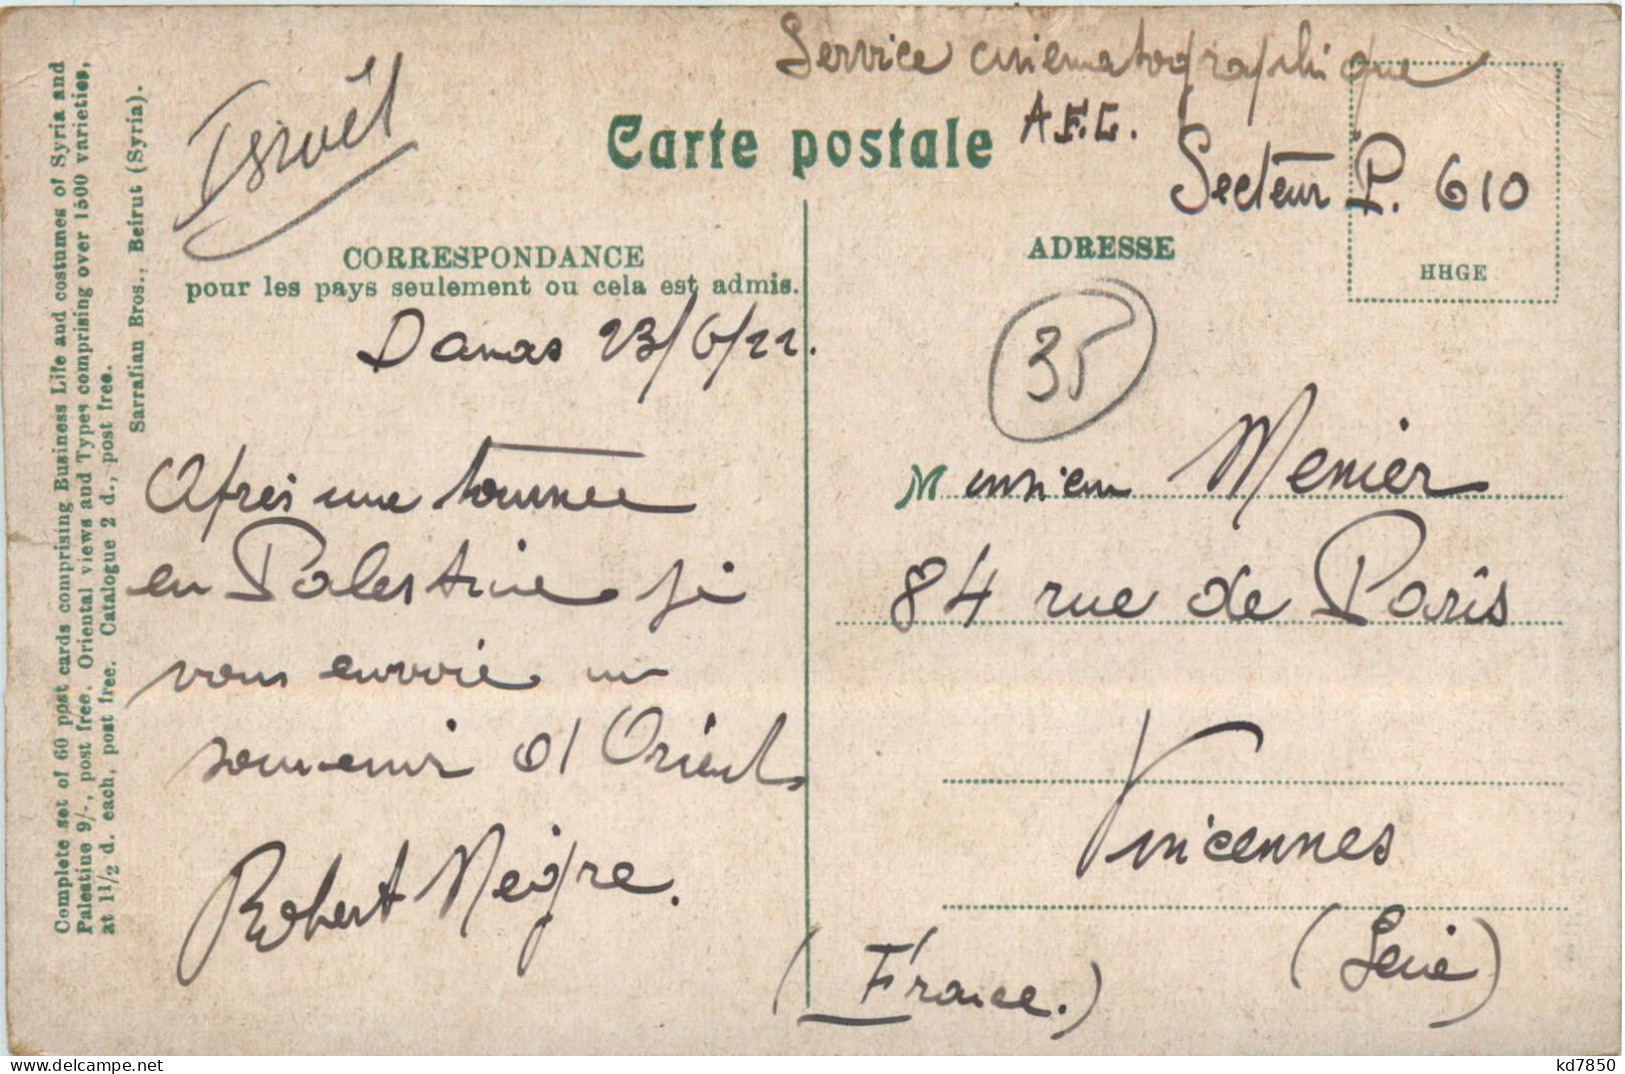 Service cinématographique
A.F.L.
Carte postale
Secteur P. 610
Israël
CORRESPONDANCE
pour les pays seulement ou cela est admis.
ADRESSE
HHGE
Damas 23/6/22.
35
Après une tournée
en Palestine je
vous envoie un
souvenir d'Orient
Robert Neigre.
Monsieur Menier
84 rue de Paris
Vincennes
(Seine)
(France.)
Complete set of 60 post cards comprising Business Life and costumes of Syria and
Palestine 9/-, post free. Oriental views and Types comprising over 1500 varieties,
at 1 1/2 d. each, post free. Catalogue 2 d., post free.
Sarrafian Bros., Beirut (Syria).
delcampe.net
kd7850